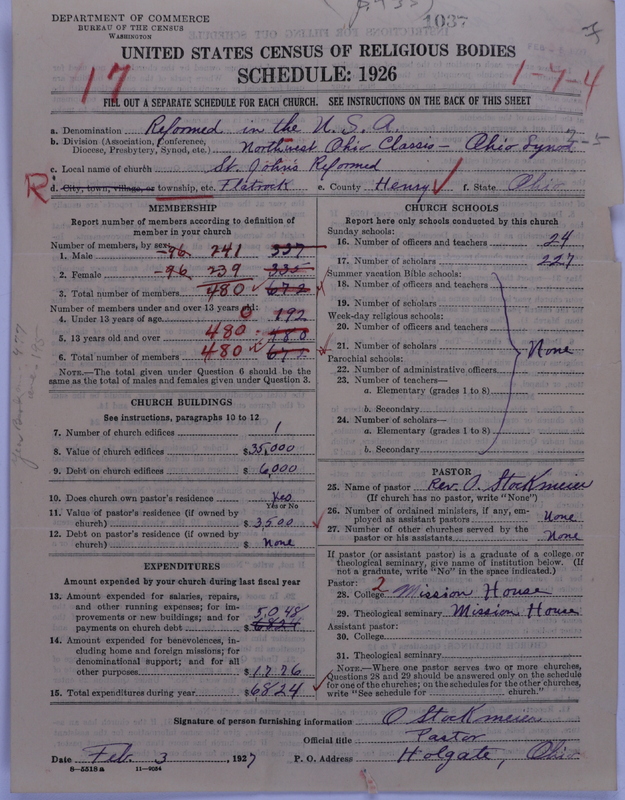 DEPARTMENT OF COMMERCE
BUREAU OF THE CENSUS
WASHINGTON
1037
UNITED STATES CENSUS OF RELIGIOUS BODIES
SCHEDULE: 1926
17
1-7-4
FILL OUT A SEPARATE SCHEDULE FOR EACH CHURCH. SEE INSTRUCTIONS ON THE BACK OF THIS SHEET
a. Denomination Reformed in the U.S.A.
b. Division (Association, Conference, Diocese, Presbytery, Synod, etc.) Northwest Ohio Classis - Ohio Synod
c. Local name of church St. John's Reformed
R d. City, town, village, or township, etc. Flatrock e. County Henry f. State Ohio
MEMBERSHIP
Report number of members according to definition of
member in your church
Number of members, by sex:
1. Male -96 241 337
2. Female -96 239 335
3. Total number of members 480 672
Number of members under and over 13 years old:
4. Under 13 years of age 0 192
5. 13 years old and over 480 480
6. Total number of members 480 672
NOTE.—The total given under Question 6 should be the
same as the total of males and females given under Question 3.
CHURCH BUILDINGS
See instructions, paragraphs 10 to 12
7. Number of church edifices 1
8. Value of church edifices $35,000
9. Debt on church edifices $6,000
10. Does church own pastor's residence Yes
Yes or No
11. Value of pastor's residence (if owned by
church) $3,500
12. Debt on pastor's residence (if owned by
church) $None
EXPENDITURES
Amount expended by your church during last fiscal year
13. Amount expended for salaries, repairs,
and other running expenses; for im-
provements or new buildings; and for
payments on church debt $5,048 6824
14. Amount expended for benevolences, in-
cluding home and foreign missions; for
denominational support; and for all
other purposes $1776
15. Total expenditures during year $6824
CHURCH SCHOOLS
Report here only schools conducted by this church
Sunday schools:
16. Number of officers and teachers 24
17. Number of scholars 227
Summer vacation Bible schools:
18. Number of officers and teachers
19. Number of scholars
Week-day religious schools:
20. Number of officers and teachers
21. Number of scholars None
Parochial schools:
22. Number of administrative officers
23. Number of teachers—
a. Elementary (grades 1 to 8)
b. Secondary
24. Number of scholars—
a. Elementary (grades 1 to 8)
b. Secondary
PASTOR
25. Name of pastor Rev. O. Stockmeier
(If church has no pastor, write "None")
26. Number of ordained ministers, if any, em-
ployed as assistant pastors None
27. Number of other churches served by the
pastor or his assistants None
If pastor (or assistant pastor) is a graduate of a college or
theological seminary, give name of institution below. (If
not a graduate, write "No" in the space indicated.)
Pastor:
28. College 2 Mission House
29. Theological seminary Mission House
Assistant pastor:
30. College
31. Theological seminary
NOTE.—Where one pastor serves two or more churches,
Questions 28 and 29 should be answered only on the schedule
for one of the churches; on the schedules for the other churches,
write "See schedule for church."
Signature of person furnishing information O Stockmeier
Official title Pastor
Date Feb. 3, 1927 P. O. Address Holgate, Ohio
8-5518a 11-9024